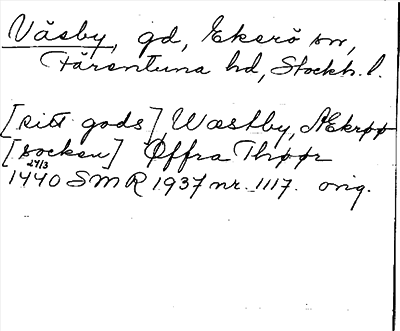 Väsby, gd, Ekerö sn,
Färentuna hd, Stockh. l.
[sitt gods] Wæstby, Ækrøø
[socken] Øffra Thøør
27/3
1440 SMR 1937 nr. 1117. orig.